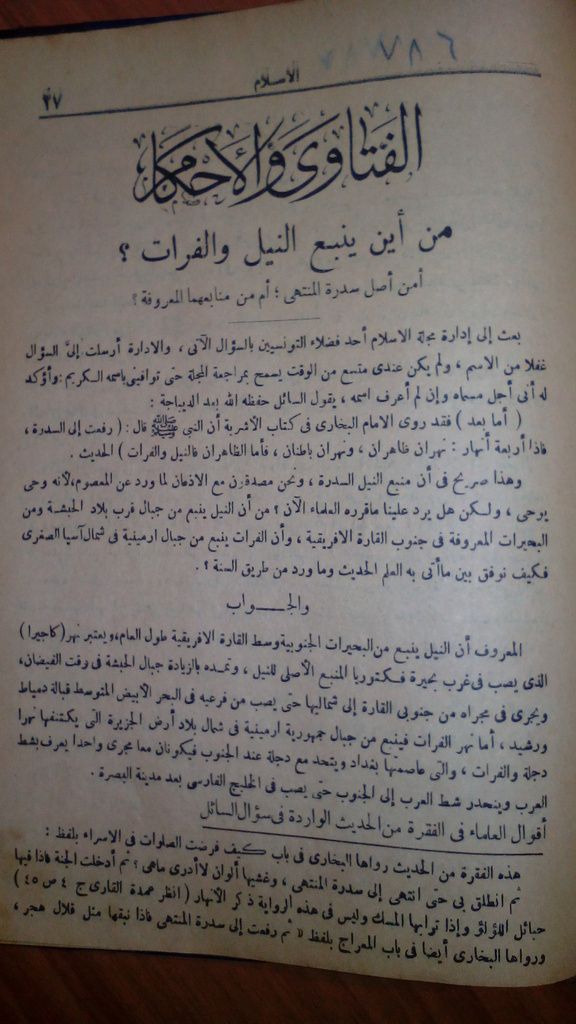 ٧٨٦
الاسلام
٣٧
الفتاوى والأحكام
من أين ينبع النيل والفرات ؟
أمن أصل سدرة المنتهى ؛ أم من منابعهما المعروفة ؟
بعث إلى إدارة مجلة الاسلام أحد فضلاء التونسيين بالسؤال الآتى ، والادارة أرسلت إلىَّ السؤال
غفلا من الاسم ، ولم يكن عندى متسع من الوقت يسمح بمراجعة المجلة حتى توافينى باسمه الكريم : وأؤكد
له أنى أجل مسماه وإن لم أعرف اسمه ، يقول السائل حفظه الله بعد الديباجة :
( أما بعد ) فقد روى الامام البخارى فى كتاب الأشربة أن النبى ﷺ قال : ( رفعت إلى السدرة ،
فاذا أربعة أنهار : نهران ظاهران ، ونهران باطنان ، فأما الظاهران فالنيل والفرات ) الحديث .
وهذا صريح فى أن منبع النيل السدرة ، ونحن مصدقون مع الاذعان لما ورد عن المعصوم، لأنه وحى
يوحى ، ولكن هل يرد علينا ماقرره العلماء الآن ؟ من أن النيل ينبع من جبال قرب بلاد الحبشة ومن
البحيرات المعروفة فى جنوب القارة الافريقية ، وأن الفرات ينبع من جبال ارمينية فى شمال آسيا الصغرى
فكيف نوفق بين ماأتى به العلم الحديث وما ورد من طريق السنة ؟ .
والجـــواب
المعروف أن النيل ينبع من البحيرات الجنوبية وسط القارة الافريقية طول العام، ويعتبر نهر (كاجيرا)
الذى يصب فى غرب بحيرة فكتوريا المنبع الأصلى للنيل ، وتمده بالزيادة جبال الحبشة فى وقت الفيضان،
ويجرى فى مجراه من جنوبى القارة إلى شماليها حتى يصب من فرعيه فى البحر الأبيض المتوسط قبالة دمياط
ورشيد ، أما نهر الفرات فينبع من جبال جمهورية ارمينية فى شمال بلاد أرض الجزيرة التى يكتنفها نهرا
دجلة والفرات ، والتى عاصمتها بغداد ويتحد مع دجلة عند الجنوب فيكونان معا مجرى واحدا يعرف بشط
العرب وينحدر شط العرب إلى الجنوب حتى يصب فى الخليج الفارسى بعد مدينة البصرة .
أقوال العلماء فى الفقرة من الحديث الواردة فى سؤال السائل
هذه الفقرة من الحديث رواها البخارى فى باب كيف فرضت الصلوات فى الاسراء بلفظ :
ثم انطلق بى حتى انتهى إلى سدرة المنتهى ، وغشيها ألوان لا أدرى ماهى ؟ ثم أدخلت الجنة فاذا فيها
حبائل اللؤلؤ وإذا ترابها المسك وليس فى هذه الرواية ذكر الأنهار ( انظر عمدة القارى ج ٤ ص ٤٥ )
ورواها البخارى أيضا فى باب المعراج بلفظ « ثم رفعت إلى سدرة المنتهى فاذا نبقها مثل قلال هجر ،